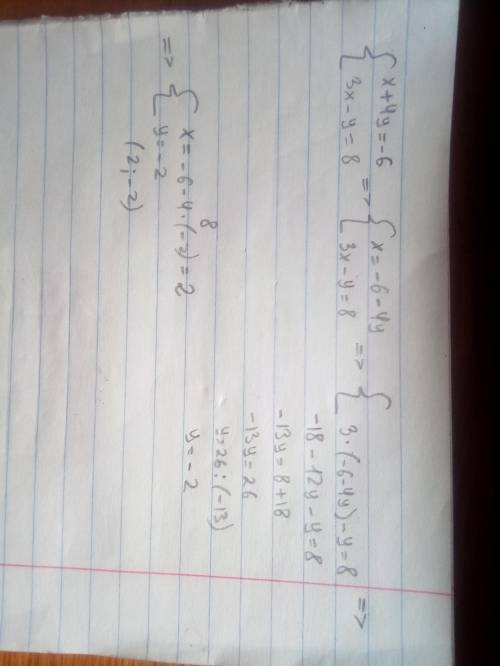 { x+4y=-6 => { x=-6-4y => {
{ 3x-y=8 { 3x-y=8 { 3·(-6-4y)-y=8 =>
-18-12y-y=8
-13y=8+18
-13y=26
y=26:(-13)
y=-2
8
=> { x=-6-4·(-2)=2
{ y=-2
(2;-2)